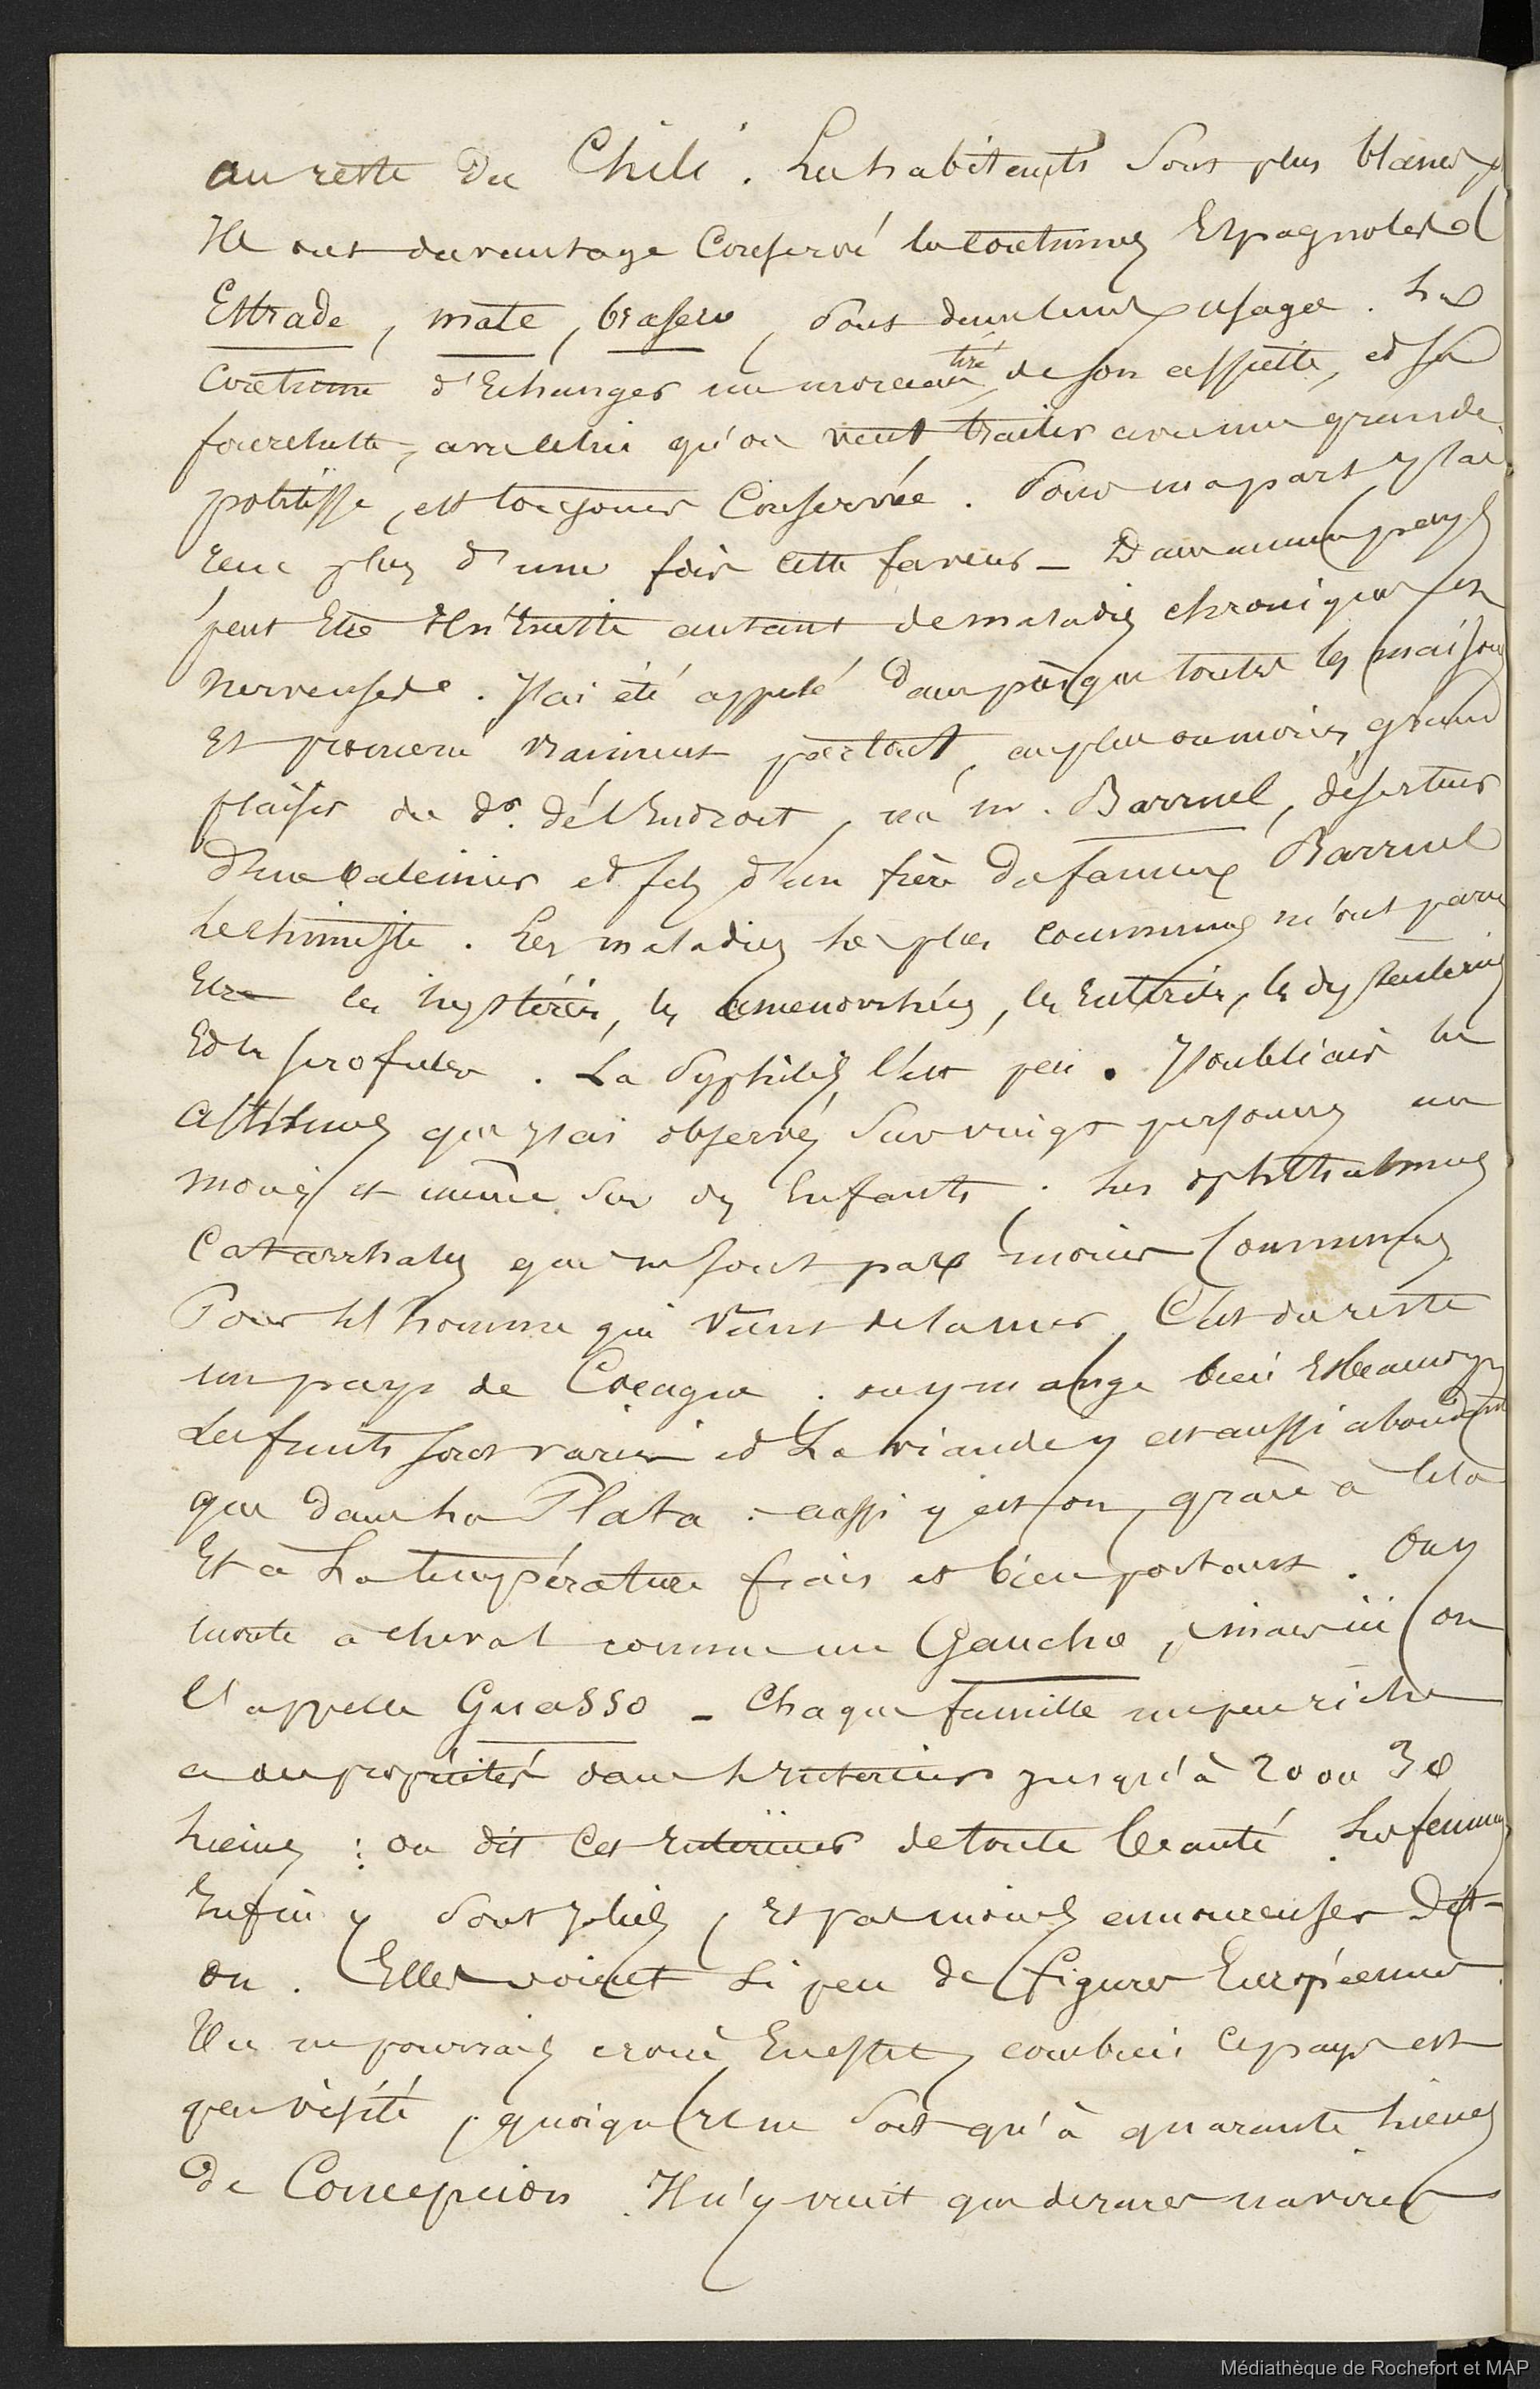 au reste du Chili. Les habitants sont plus blancs,
Ils ont davantage Conservé les coutumes Espagnoles
Estrade, mate, brasero, sont dans leurs usages. La
Coutume d'Echanger un morceau tiré de son assiette, et sa
fourchette, avec celui qu'on veut traiter avec une grande
politesse, est toujours Conservée. Pour ma part j'ai
recu plus d'une fois cette faveur _ Dans aucun pays
peut Etre Il n'Existe autant de maladies chroniques et
nerveuses. J'ai été appelé dans presque toutes les maisons
Et promené vraiment partout, au plus ou moins grand
plaisir du dr. de l'Endroit, un mr. Barruel, déserteur
d'un baleinier et fils d'un frère du fameux Barruel
Le chimiste. Les maladies les plus communes m'ont paru
Etre les hystéries, les amenorrhées, les Entérites, les dyssenteries
Et les scrofules. La Syphilis l'est peu. J'oubliais les
asthmes que j'ai observés sur vingt personnes au
moins et même sur des Enfants; les ophthalmies
Catarrhales qui ne sont pas moins Communes
Pour l'homme qui vient de la mer, C'est du reste
un pays de Cocagne. on y mange bien Et beaucoup
Les fruits sont variés et La viande y est aussi abondante
que dans La Plata: aussi y est on, grâce à cela
Et à La température frais et bien portant. On y
monte à cheval comme un Gaucho, mais ici on
l'appelle Guasso _ Chaque famille un peu riche
a des propriétés dans l'Interieur jusqu'à 20 ou 30
lieues: on dit cet Intérieur de toute beauté. Les femmes
Enfin y sont jolies, Et pas moins amoureuses dit-
on. Elles voient si peu de figures Européennes
Tu ne pourrais croire En effet combien ce pays est
peu visité, quoiqu'il ne soit qu'à quarante lieues
de Concepcion. Il n'y vient que de rares navires
Médiathèque de Rochefort et MAP